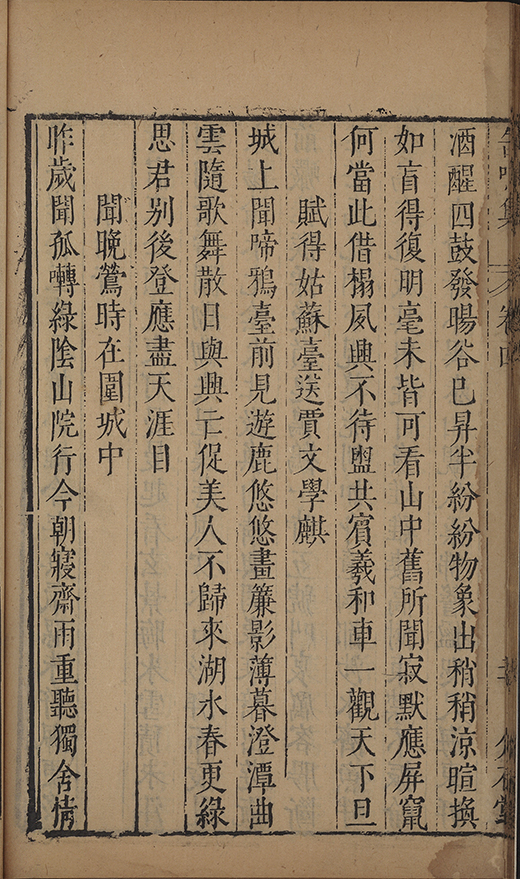 酒醒四鼓發暘谷已昇半紛紛物象出稍稍涼暄換
如盲得復明毫末皆可看山中舊所聞寂默應屏竄
何當此借榻夙興不待盥共賓羲和車一觀天下旦
賦得姑蘇臺送賈文學麒
城上聞啼鴉臺前見遊鹿悠悠畫簾影薄暮澄潭曲
雲隨歌舞散日與興亡促美人不歸來湖水春更綠
思君别後登應盡天涯目
聞晚鶯時在圍城中
昨歲聞孤囀綠陰山院行今朝寢齋雨重聽獨含情